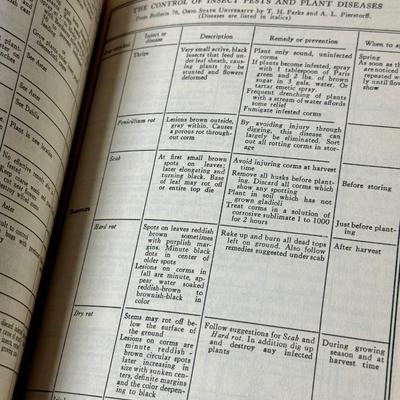 THE CONTROL OF INSECT PESTS AND PLANT DISEASES
From Bulletin 76, Ohio State University by T. H. Parks and A. L. Pierstorff.
(Diseases are listed in italics)
Insect or
disease
Description
Remedy or prevention
When to
Thrips
Very small, active, black
insects that feed un-
der leaf sheath, caus-
ing plants to be
stunted and flowers
deformed
Plant only sound, uninfested
corms
If plants become infested, spray
with 1 tablespoon of Paris
green and 2 lbs. of brown
sugar in 3 gals. water. Or
tartar emetic spray.
Frequent drenching of plants
with a stream of water affords
some relief
Fumigate infested corms
Spring
As soon as
are noticed
Penicillium rot
Lesions brown outside,
gray within. Causes
a porous rot through-
out corm
By avoiding injury through
digging, this disease can
largely be eliminated. Sort
out all rotting corms in stor-
age
Before storing
Scab
At first small brown
spots on leaves;
later elongating and
turning black. Base
of leaf may rot off
or entire top die
Avoid injuring corms at harvest
time
Remove all husks before plant-
ing. Discard all corms which
show any spotting
Plant in soil which has not
grown gladioli
Treat corms in a solution of
corrosive sublimate 1 to 1000
for 2 hours
Just before plant-
ing
Hard rot
Spots on leaves reddish
brown sometimes
with purplish mar-
gins. Minute black
dots in center of
older spots
Lesions on corms in
fall are minute, ap-
pear water soaked
reddish-brown to
brownish-black in
color
Rake up and burn all dead tops
left on ground. Also follow
remedies suggested under scab
After harvest
Dry rot
Stems may rot off be-
low the surface of
the ground
Lesions on corms are
minute reddish-
brown circular spots
later increasing in
size with sunken cen-
ters, definite margins
and the color deepen-
ing to black
Follow suggestions for Scab and
Hard rot. In addition dig up
and destroy any infected
plants
During growing
season and at
harvest time
See Aster
See Dahlia